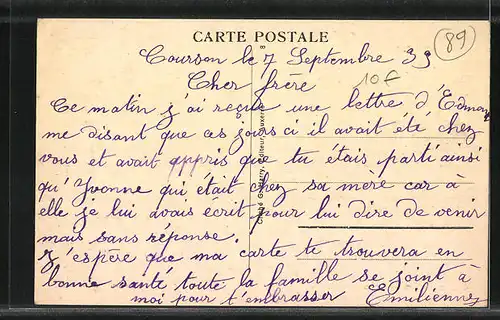 CARTE POSTALE
89
Courson le 7 Septembre 39
10 F
Cher frère
Ce matin j'ai reçue une lettre d'Edmond
me disant que ces jours ci il avait été chez
vous et avait appris que tu étais parti ainsi
qu'Yvonne qui était chez sa mère car à
elle je lui avais écrit pour lui dire de venir
mais sans réponse.
J'espère que ma carte te trouvera en
bonne santé toute la famille se joint à
moi pour t'embrasser Emilienne